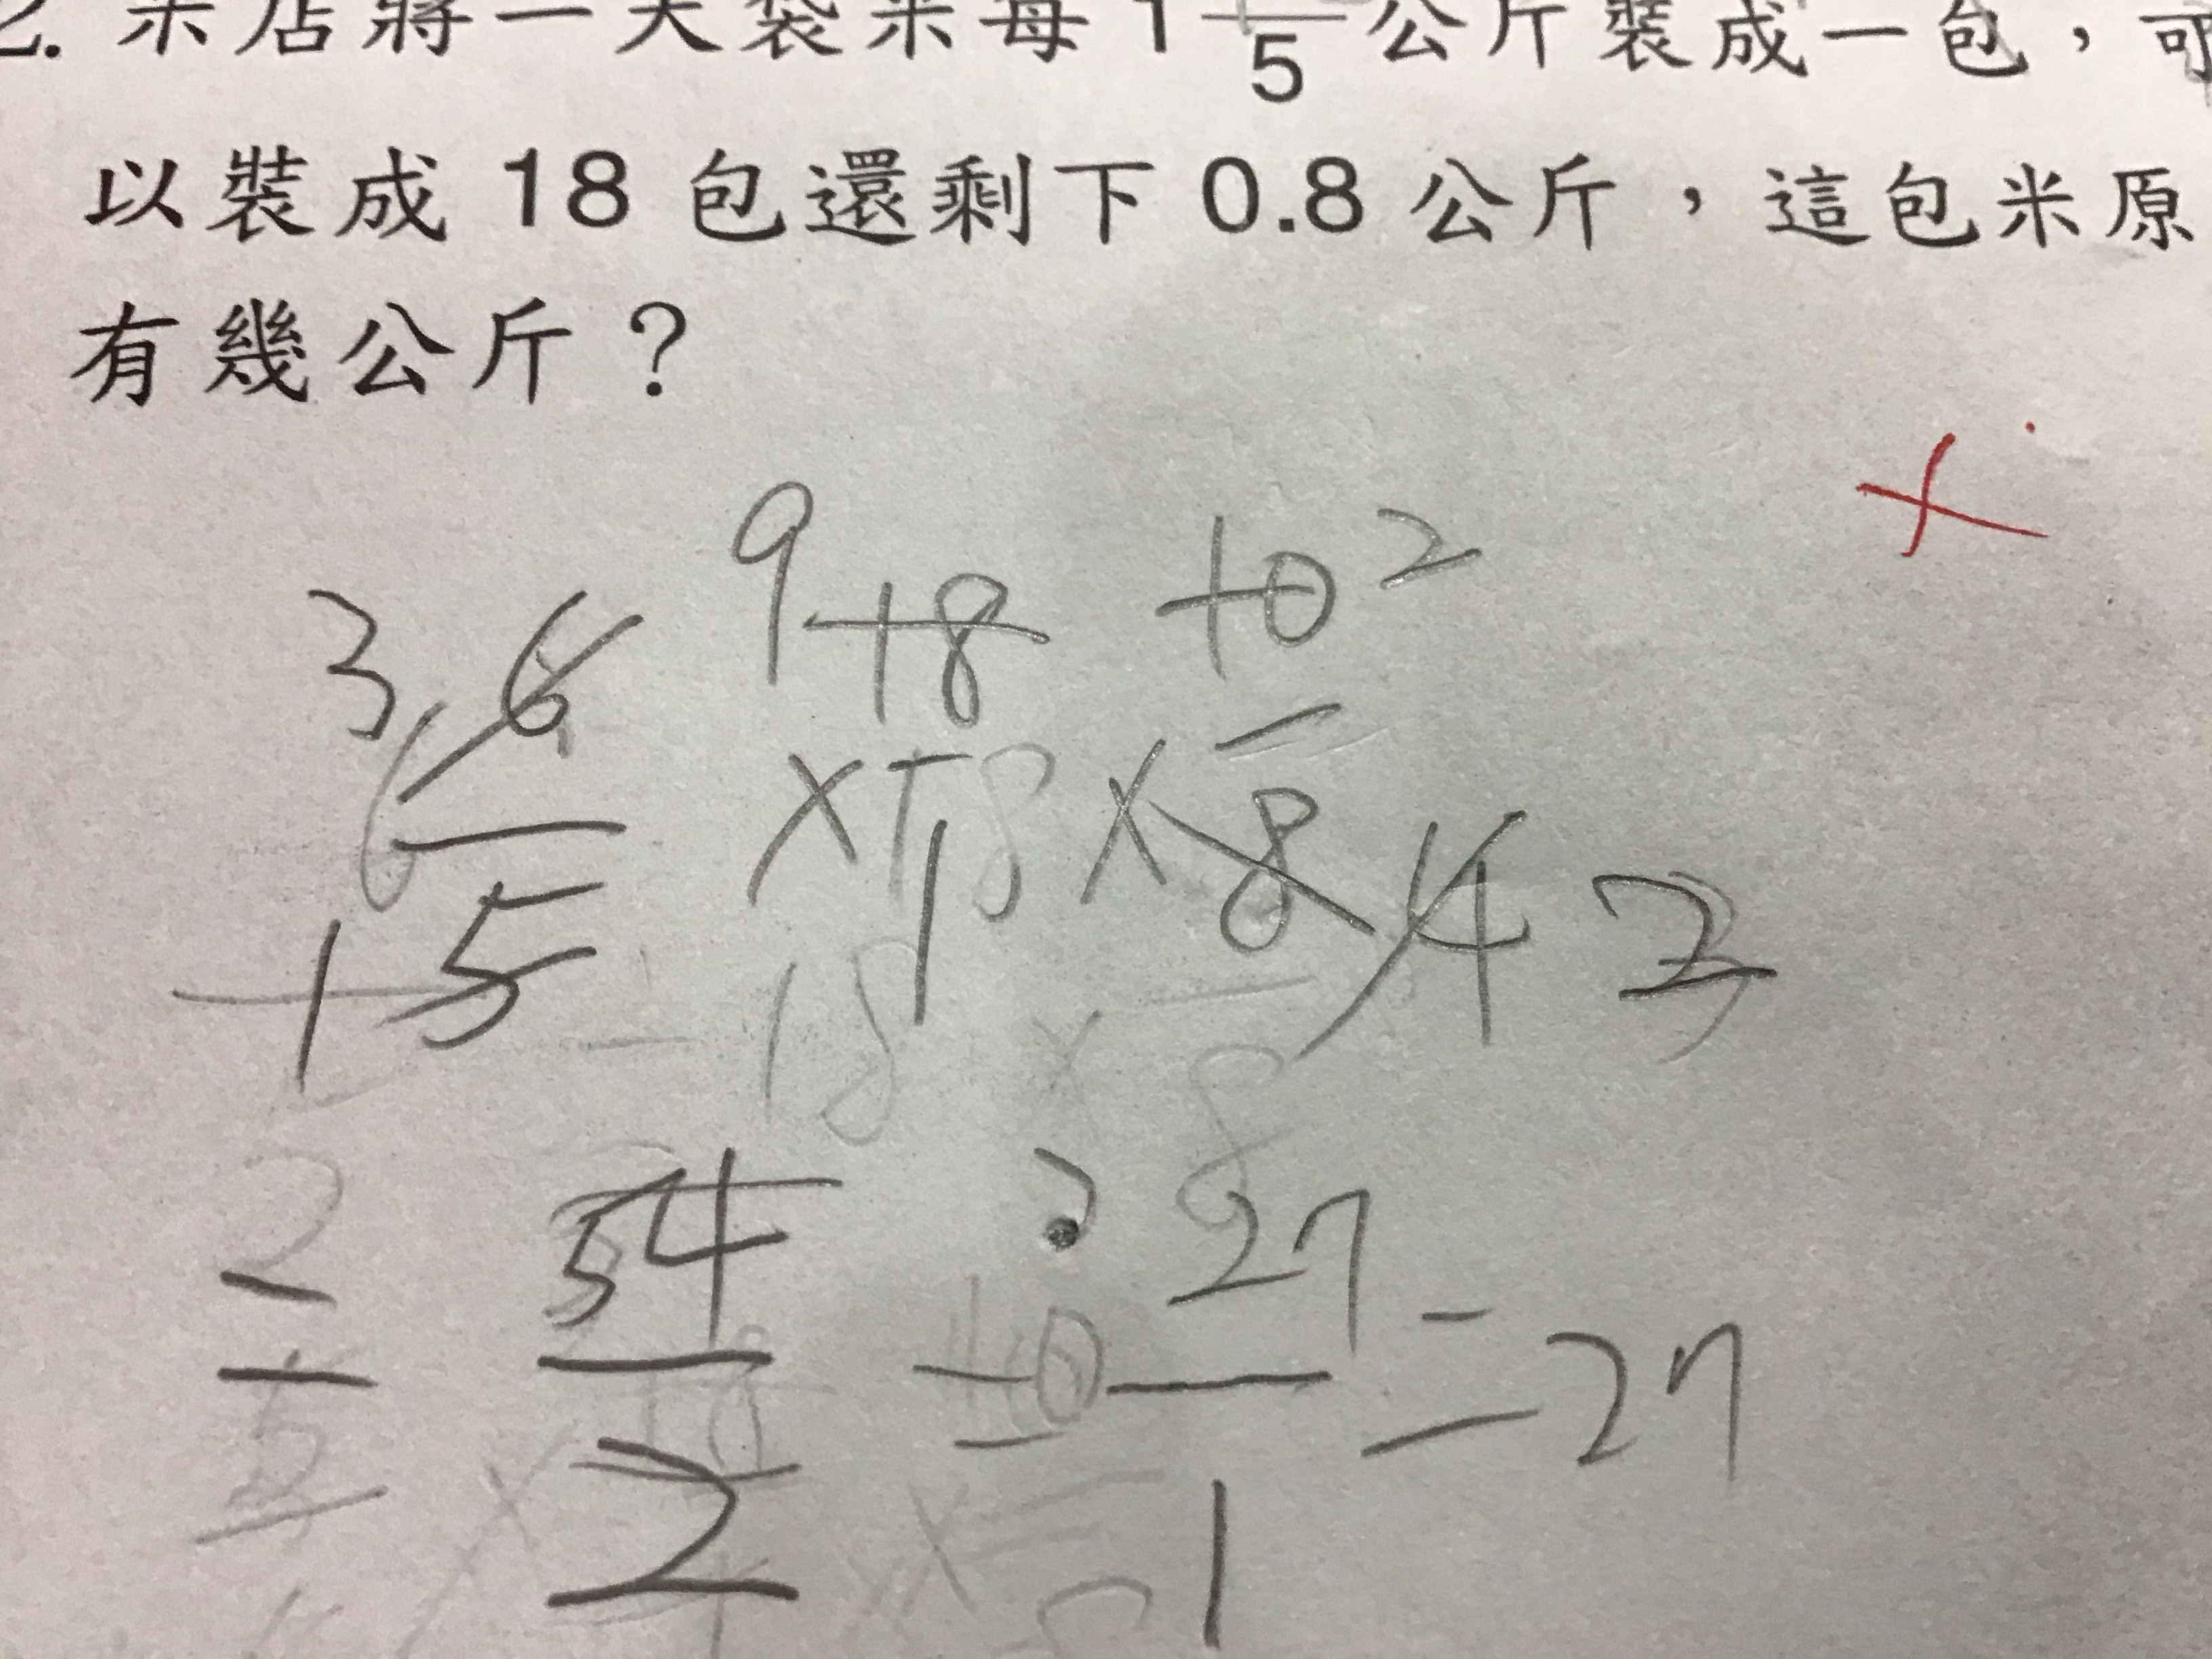 2. 米店將一大袋米每 1 /5 公斤裝成一包，可
以裝成 18 包還剩下 0.8 公斤，這包米原
有幾公斤？
3 6 9 18 10 2
5 × 1 × 8 4 2
1
= 54/2 = 27/1 = 27